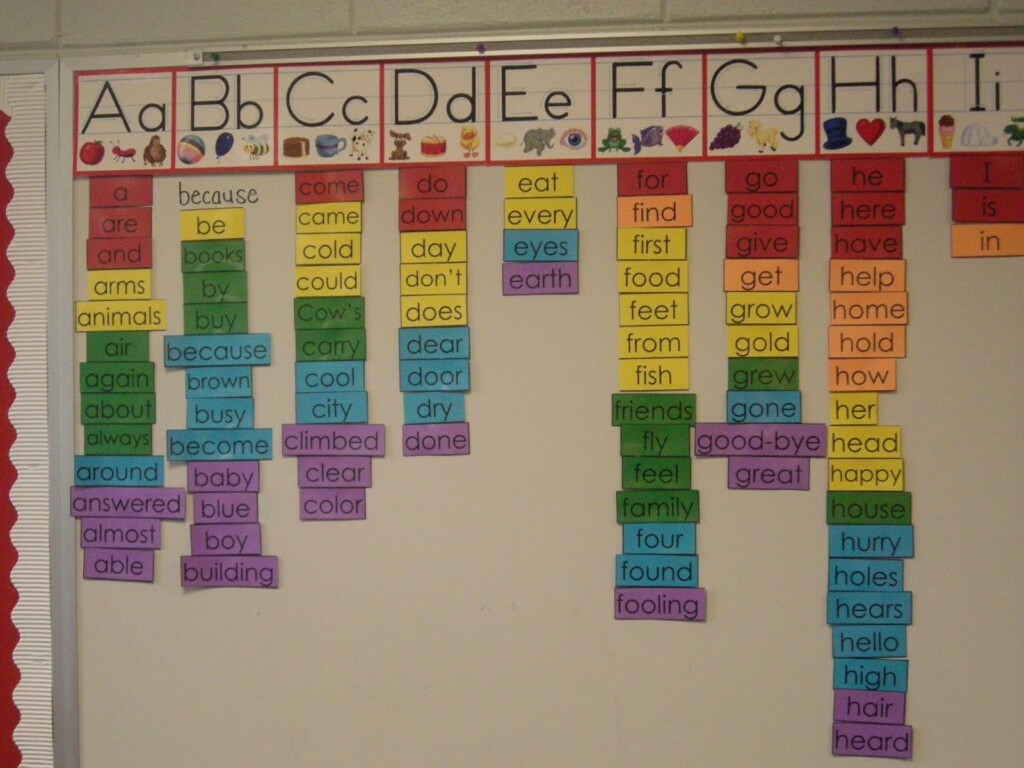 Aa Bb Cc Dd Ee Ff Gg Hh Ii
a
are
and
arms
animals
air
again
about
always
around
answered
almost
able
because
be
books
by
buy
because
brown
busy
become
baby
blue
boy
building
come
came
cold
could
Cow's
carry
cool
city
climbed
clear
color
do
down
day
don't
does
dear
door
dry
done
eat
every
eyes
earth
for
find
first
food
feet
from
fish
friends
fly
feel
family
four
found
fooling
go
good
give
get
grow
gold
grew
gone
good-bye
great
he
here
have
help
home
hold
how
her
head
happy
house
hurry
holes
hears
hello
high
hair
heard
I
is
in